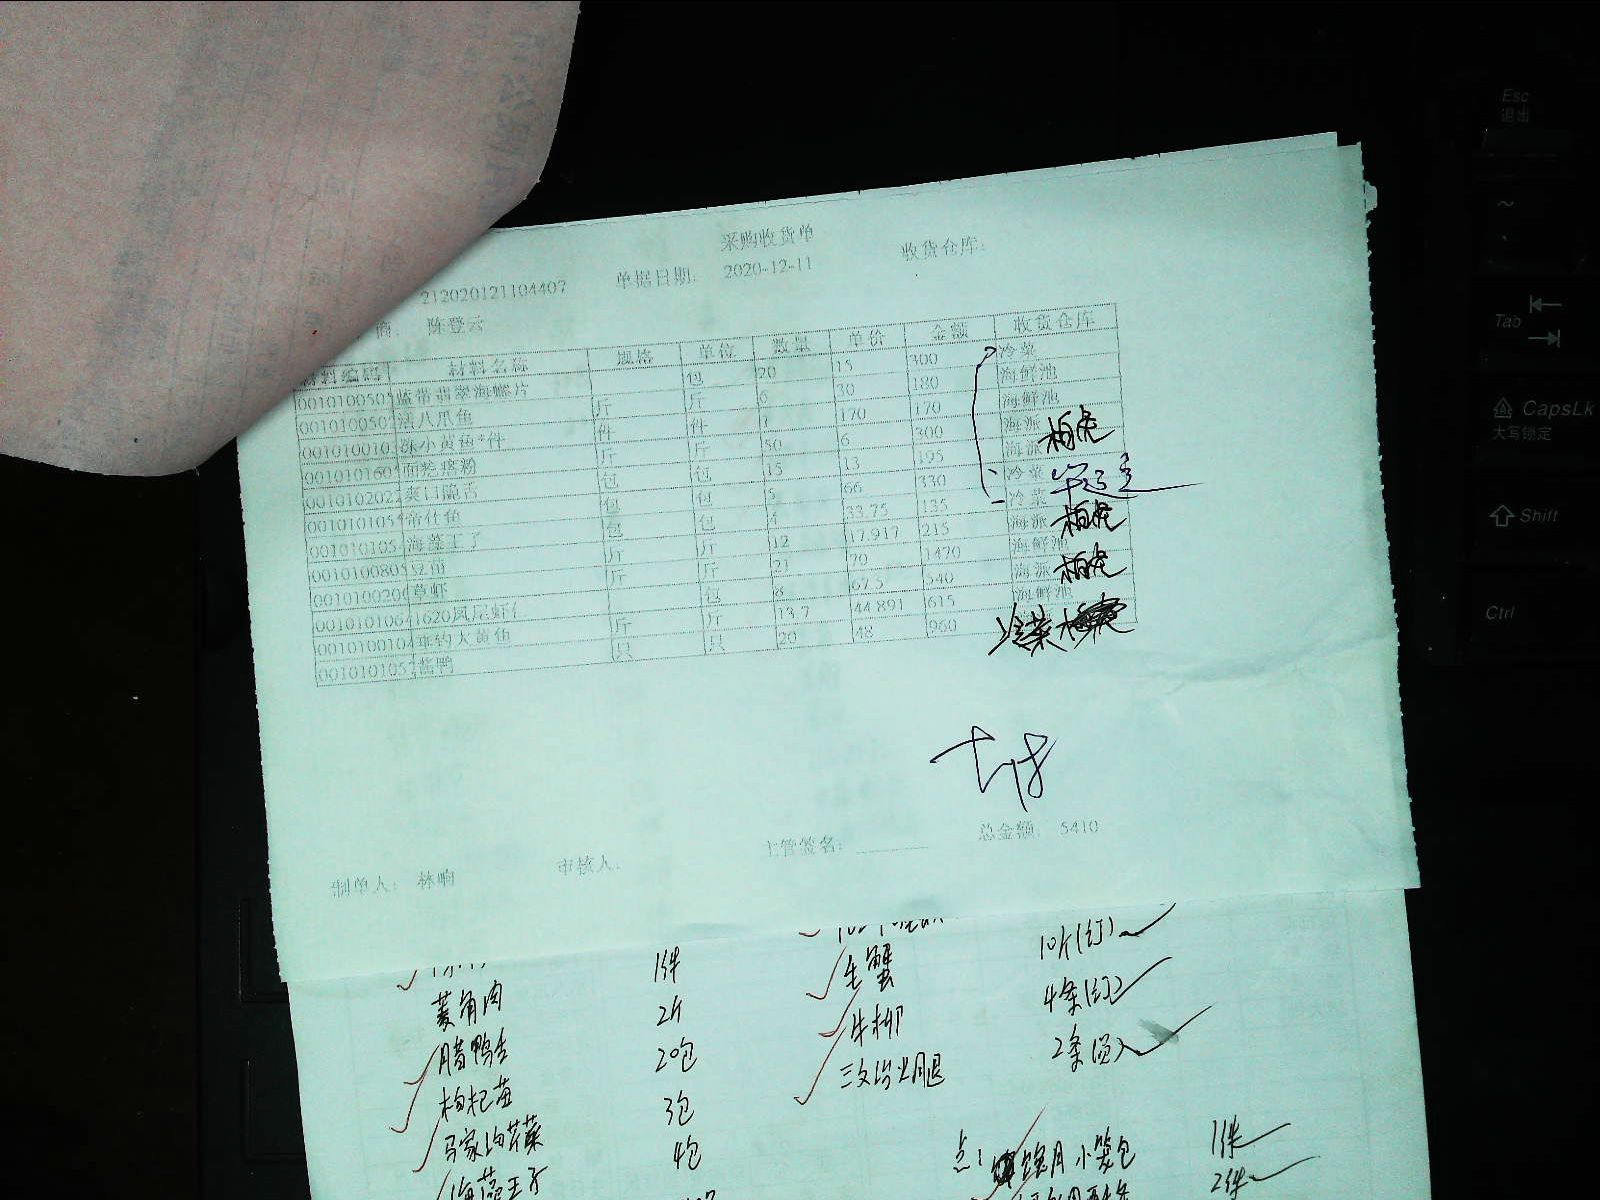 采购收货单
212020121104407 单据日期: 2020-12-11 收货仓库:
商: 陈登云
材料编码 材料名称 规格 单位 数量 单价 金额 收货仓库
001010050 翡翠海螺片 包 20 15 300 冷菜
001010050 八爪鱼 斤 斤 6 30 180 海鲜池
001010010 小黄鱼*件 件 件 1 170 170 海鲜池
001010160 面粉 斤 斤 50 6 300 海派
001010202 爽口脆舌 包 包 15 13 195 海派 柏虎
001010105 帝仕鱼 包 包 5 66 330 冷菜
001010105 海藻王子 包 包 4 33.75 135 冷菜
001010080 斤 斤 12 17.917 215 海派 柏虎
001010020 草虾 斤 斤 21 70 1470 海鲜池
001010106 1620凤尾虾仁 包 8 67.5 540 海派 柏虎
001010010 海钓大黄鱼 斤 斤 13.7 44.891 615 海鲜池
001010105 酱鸭 只 只 20 48 960 冷菜
主管签名: 总金额: 5410
制单人: 林响 审核人:
1件 10斤(订)
菱角肉 2斤 生蟹 4条(订)
腊鸭舌 20包 牛柳 2条
枸杞苗 3包 三文治火腿
马家沟芹菜 4包
海藻王子
点: 小笼包 1件
2件
Esc
退出
~
Tab
CapsLk
大写锁定
Shift
Ctrl